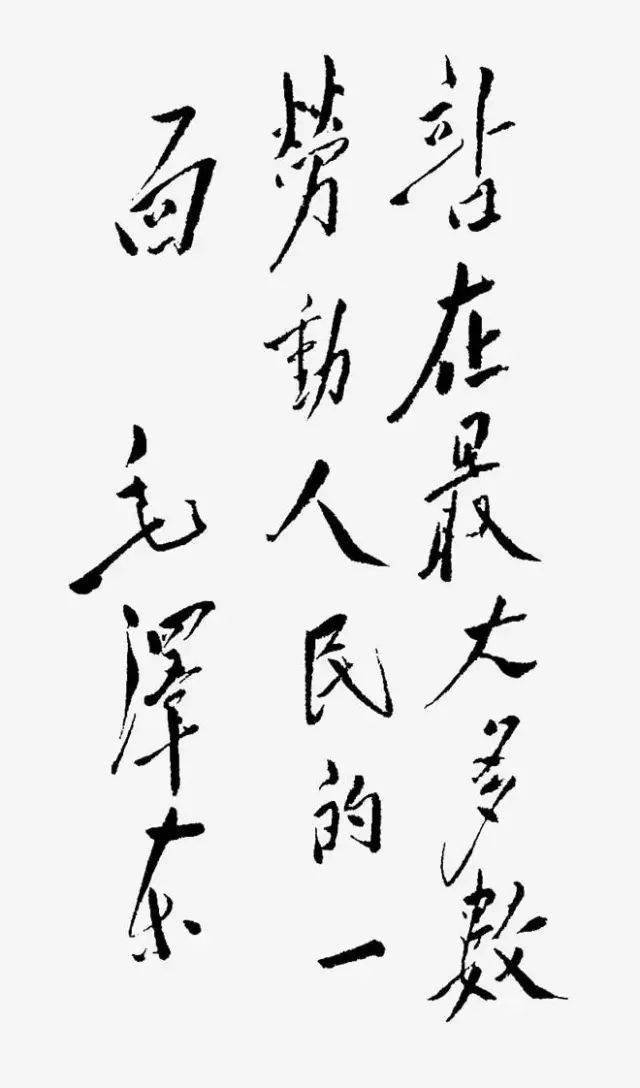 站在最大多數
勞動人民的一
面
毛澤东